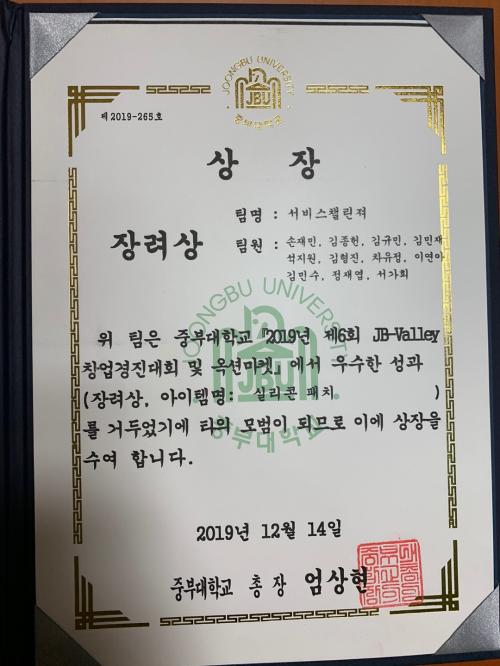 JOONGBU UNIVERSITY
JBU
중부대학교
제 2019-265호
상 장
팀명 : 서비스챌린져
장려상
팀원 : 손재민, 김종헌, 김규민, 김민재
석지원, 김형진, 차유정, 이연아
김민수, 정재엽, 서가희
JOONGBU UNIVERSITY
JBU
중부대학교
위 팀은 중부대학교 『2019년 제6회 JB-Valley
창업경진대회 및 옥션마켓』에서 우수한 성과
(장려상, 아이템명: 실리콘 패치 )
를 거두었기에 타의 모범이 되므로 이에 상장을
수여 합니다.
2019년 12월 14일
중부대학교 총장 엄상현